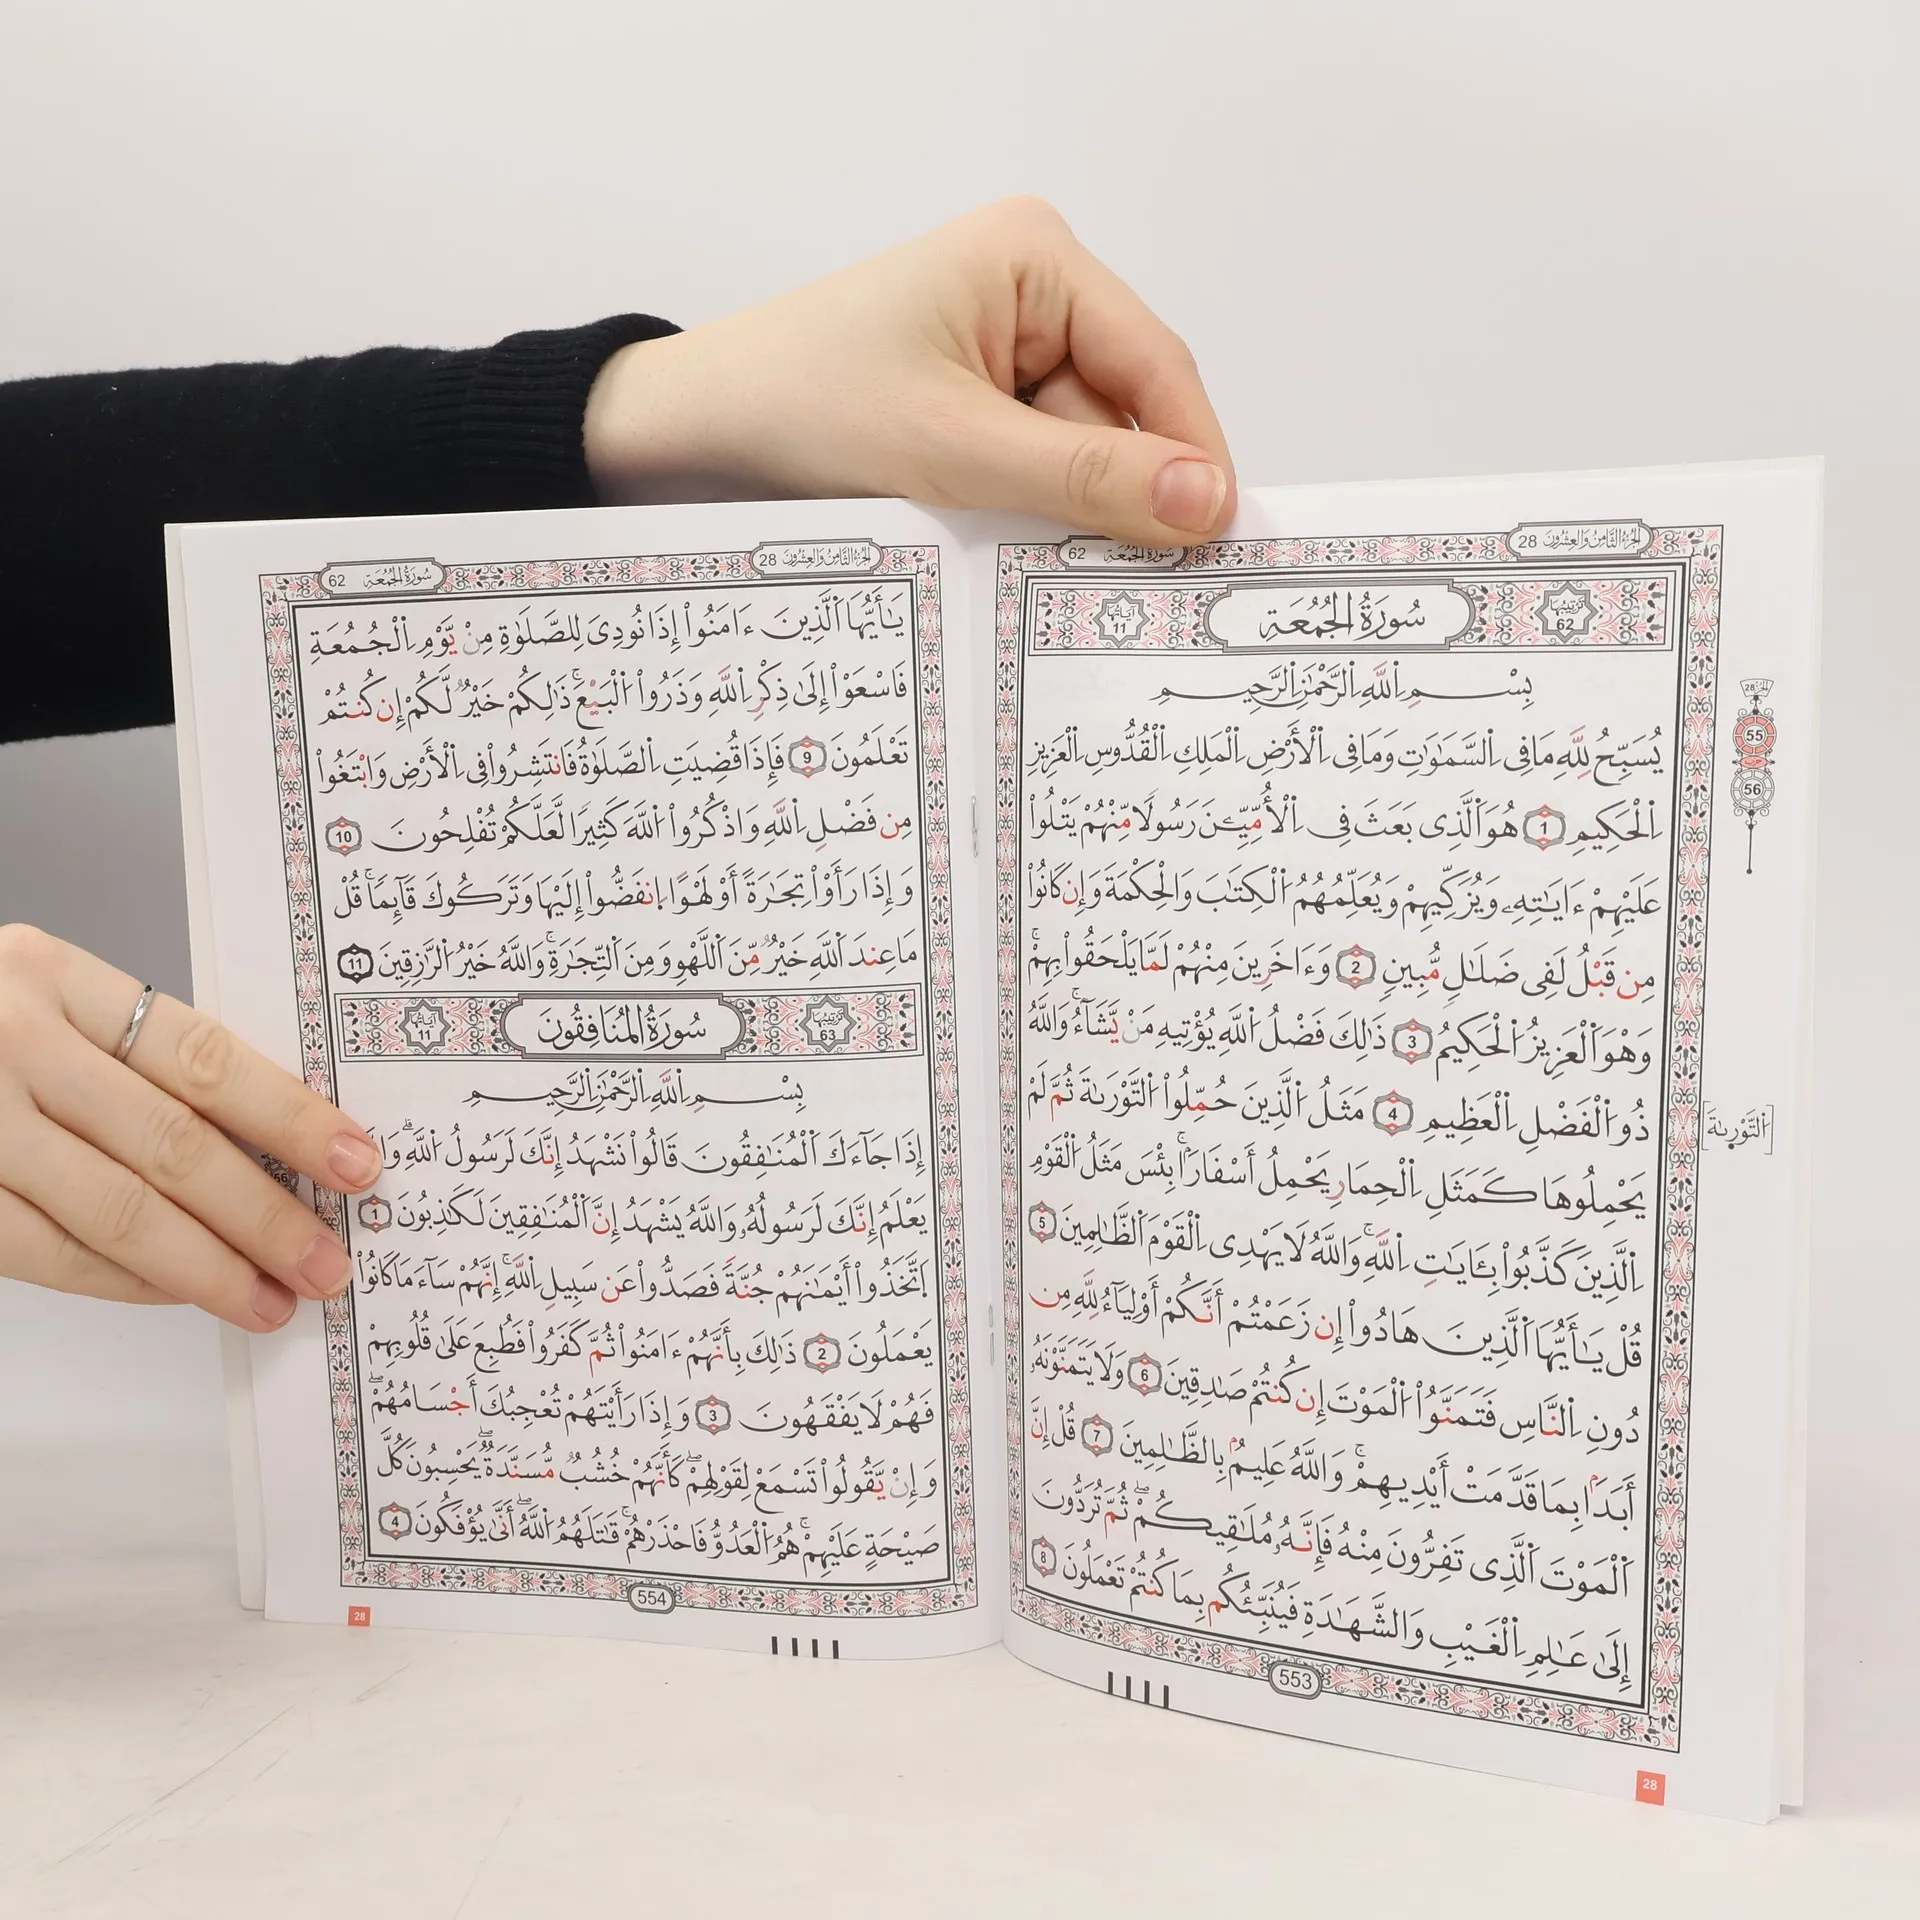 سُورَةُ الجُمُعَة 62
الجُزءُ الثَّامِنُ وَالعِشْرُونَ 28
تَرتِيبُهَا 62
سُورَةُ الجُمُعَة
آيَاتُهَا 11
بِسْمِ اِ۬للَّهِ اِ۬لرَّحْمَٰنِ اِ۬لرَّحِيمِ
يُسَبِّحُ لِلَّهِ مَا فِى اِ۬لسَّمَٰوَٰتِ وَمَا فِى اِ۬لْأَرْضِ اِ۬لْمَلِكِ اِ۬لْقُدُّوسِ اِ۬لْعَزِيزِ
اِ۬لْحَكِيمِ 1 هُوَ اَ۬لَّذِى بَعَثَ فِى اِ۬لْأُمِّيِّـۧنَ رَسُولًا مِّنْهُمْ يَتْلُواْ
عَلَيْهِمْ ءَايَٰتِهِۦ وَيُزَكِّيهِمْ وَيُعَلِّمُهُمُ اُ۬لْكِتَٰبَ وَالْحِكْمَةَ وَإِن كَانُواْ
مِن قَبْلُ لَفِى ضَلَٰلٍ مُّبِينٍ 2 وَءَاخَرِينَ مِنْهُمْ لَمَّا يَلْحَقُواْ بِهِمْۚ
وَهْوَ اَ۬لْعَزِيزُ اُ۬لْحَكِيمُ 3 ذَٰلِكَ فَضْلُ اُ۬للَّهِ يُؤْتِيهِ مَنْ يَّشَآءُۚ وَاللَّهُ
ذُو اُ۬لْفَضْلِ اِ۬لْعَظِيمِ 4 مَثَلُ اُ۬لَّذِينَ حُمِّلُواْ اُ۬لتَّوْر۪ىٰةَ ثُمَّ لَمْ
يَحْمِلُوهَا كَمَثَلِ اِ۬لْحِم۪ارِ يَحْمِلُ أَسْفَارَۢاۚ بِئْسَ مَثَلُ اُ۬لْقَوْمِ
اِ۬لَّذِينَ كَذَّبُواْ بِـَٔايَٰتِ اِ۬للَّهِۚ وَاللَّهُ لَا يَهْدِى اِ۬لْقَوْمَ اَ۬لظَّٰلِمِينَ 5
قُلْ يَٰٓأَيُّهَا اَ۬لَّذِينَ هَادُواْ إِن زَعَمْتُمْ أَنَّكُمْ أَوْلِيَآءُ لِلَّهِ مِن
دُونِ اِ۬لنَّاسِ فَتَمَنَّوُاْ اُ۬لْمَوْتَ إِن كُنتُمْ صَٰدِقِينَ 6 وَلَا يَتَمَنَّوْنَهُۥٓ
أَبَدَۢا بِمَا قَدَّمَتْ أَيْدِيهِمْۚ وَاللَّهُ عَلِيمُۢ بِالظَّٰلِمِينَ 7 قُلْ إِنَّ
اَ۬لْمَوْتَ اَ۬لَّذِى تَفِرُّونَ مِنْهُ فَإِنَّهُۥ مُلَٰقِيكُمْۖ ثُمَّ تُرَدُّونَ
إِلَىٰ عَٰلِمِ اِ۬لْغَيْبِ وَالشَّهَٰدَةِ فَيُنَبِّئُكُم بِمَا كُنتُمْ تَعْمَلُونَ 8
553
28
28
55
56
[اَ۬لتَّوْر۪ىٰةَ]
سُورَةُ الجُمُعَة 62
الجُزءُ الثَّامِنُ وَالعِشْرُونَ 28
يَٰٓأَيُّهَا اَ۬لَّذِينَ ءَامَنُواْ إِذَا نُودِىَ لِلصَّلَوٰةِ مِنْ يَّوْمِ اِ۬لْجُمُعَةِ
فَاسْعَوْاْ إِلَىٰ ذِكْرِ اِ۬للَّهِ وَذَرُواْ اُ۬لْبَيْعَۚ ذَٰلِكُمْ خَيْرٌ لَّكُمْ إِن كُنتُمْ
تَعْلَمُونَ 9 فَإِذَا قُضِيَتِ اِ۬لصَّلَوٰةُ فَانتَشِرُواْ فِى اِ۬لْأَرْضِ وَابْتَغُواْ
مِن فَضْلِ اِ۬للَّهِ وَاذْكُرُواْ اُ۬للَّهَ كَثِيرًا لَّعَلَّكُمْ تُفْلِحُونَ 10
وَإِذَا رَأَوْاْ تِجَٰرَةً أَوْ لَهْوًا اِ۪نفَضُّواْ إِلَيْهَا وَتَرَكُوكَ قَآئِمًاۚ قُلْ
مَا عِندَ اَ۬للَّهِ خَيْرٌ مِّنَ اَ۬للَّهْوِ وَمِنَ اَ۬لتِّجَٰرَةِۚ وَاللَّهُ خَيْرُ اُ۬لرَّٰزِقِينَ 11
تَرتِيبُهَا 63
سُورَةُ المُنَافِقُونَ
آيَاتُهَا 11
بِسْمِ اِ۬للَّهِ اِ۬لرَّحْمَٰنِ اِ۬لرَّحِيمِ
إِذَا جَآءَكَ اَ۬لْمُنَٰفِقُونَ قَالُواْ نَشْهَدُ إِنَّكَ لَرَسُولُ اُ۬للَّهِۗ
يَعْلَمُ إِنَّكَ لَرَسُولُهُۥ وَاللَّهُ يَشْهَدُ إِنَّ اَ۬لْمُنَٰفِقِينَ لَكَٰذِبُونَ 1
اَ۪تَّخَذُواْ أَيْمَٰنَهُمْ جُنَّةً فَصَدُّواْ عَن سَبِيلِ اِ۬للَّهِۚ إِنَّهُمْ سَآءَ مَا كَانُواْ
يَعْمَلُونَ 2 ذَٰلِكَ بِأَنَّهُمْ ءَامَنُواْ ثُمَّ كَفَرُواْ فَطُبِعَ عَلَىٰ قُلُوبِهِمْ
فَهُمْ لَا يَفْقَهُونَ 3 وَإِذَا رَأَيْتَهُمْ تُعْجِبُكَ أَجْسَامُهُمْۖ
وَإِنْ يَّقُولُواْ تَسْمَعْ لِقَوْلِهِمْۖ كَأَنَّهُمْ خُشْبٌ مُّسَنَّدَةٌۖ يَحْسِبُونَ كُلَّ
صَيْحَةٍ عَلَيْهِمْۚ هُمُ اُ۬لْعَدُوُّ فَاحْذَرْهُمْۚ قَٰتَلَهُمُ اُ۬للَّهُۖ أَنّ۪ىٰ يُؤْفَكُونَ 4
56
554
28